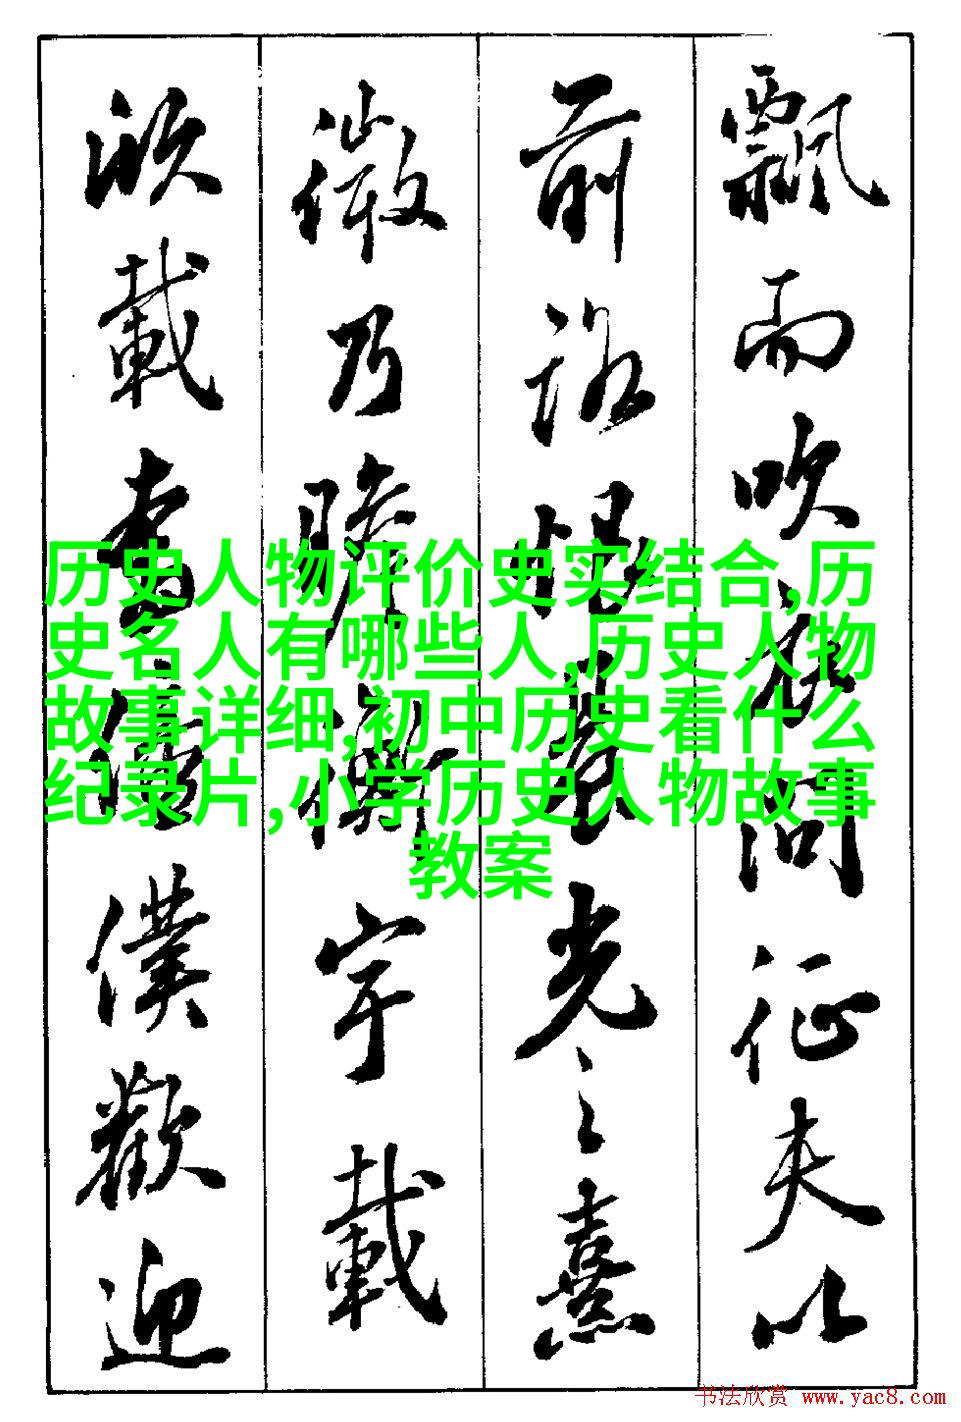 飘而吹衣问征夫以
前路恨晨光之熹
微乃瞻衡宇载
欣载奔僮仆歡迎
历史人物评价史实结合,历
史名人有哪些人,历史人物
故事详细,初中历史看什么
纪录片,小学历史人物故事
教案
书法欣赏 www.yac8.com